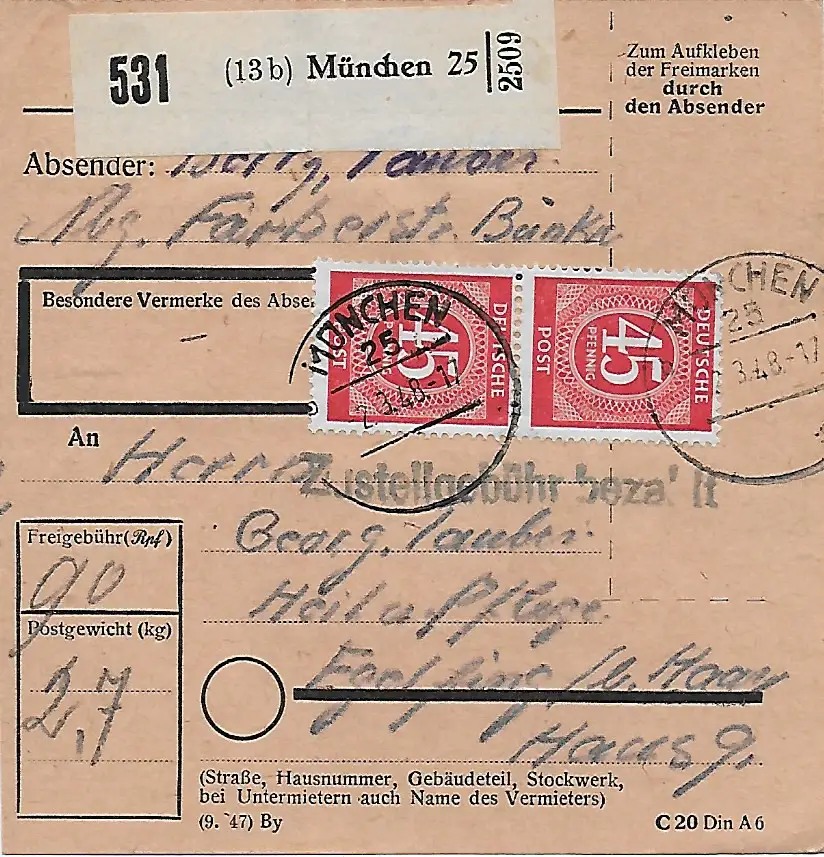 531 (13b) München 25 2509
Zum Aufkleben
der Freimarken
durch
den Absender
Absender: Tauber.
Besondere Vermerke des Abse
DEUTSCHE POST 45
DEUTSCHE POST 45 PFENNIG
MÜNCHEN
25
2.3.48.-17
MÜNCHEN
25
3.48.-17
An Herrn
Zustellgebühr bezahlt
Georg Tauber.
Heil u Pflege.
Eglfing b. Haar
Haus 9.
Freigebühr (Rpf)
90
Postgewicht (kg)
2,7
(Straße, Hausnummer, Gebäudeteil, Stockwerk,
bei Untermietern auch Name des Vermieters)
(9. 47) By
C 20 Din A 6